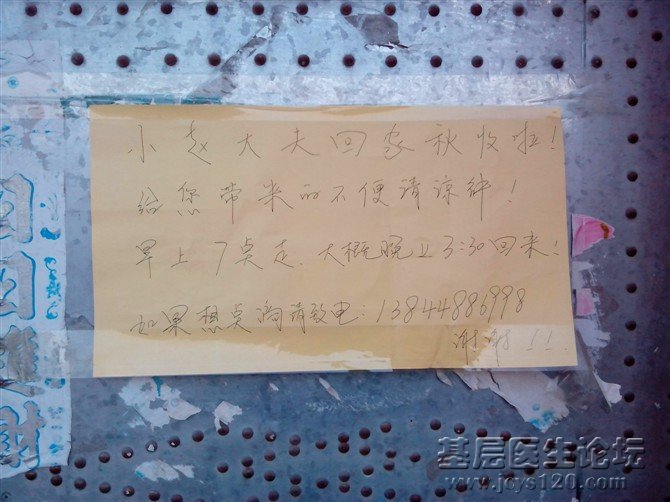 小赵大夫回家秋收啦!
给您带来的不便请谅解!
早上7点走.大概晚上3:30回来!
如果想点滴请致电:13844886998
谢谢!!
基层医生论坛
www.jcys120.com